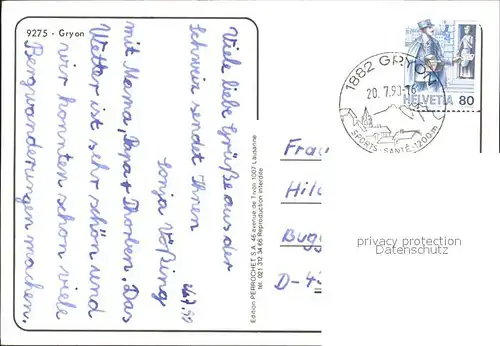 9275 - Gryon
Viel liebe Grüße aus der
Schweiz sendet Ihnen
Sonja Vößing
mit Mama, Papa + Thorben. Das
Wetter ist sehr schön und
wir konnten schon viele
Bergwanderungen machen.
Edition PERROCHET S.A. 46 avenue de Tivoli 1007 Lausanne
Tél. 021 312 34 66 Reproduction interdite
1882 GRYON
20.7.93-16
SPORTS-SANTÉ-1200m
HELVETIA 80
Frau
D-4
privacy protection
Datenschutz